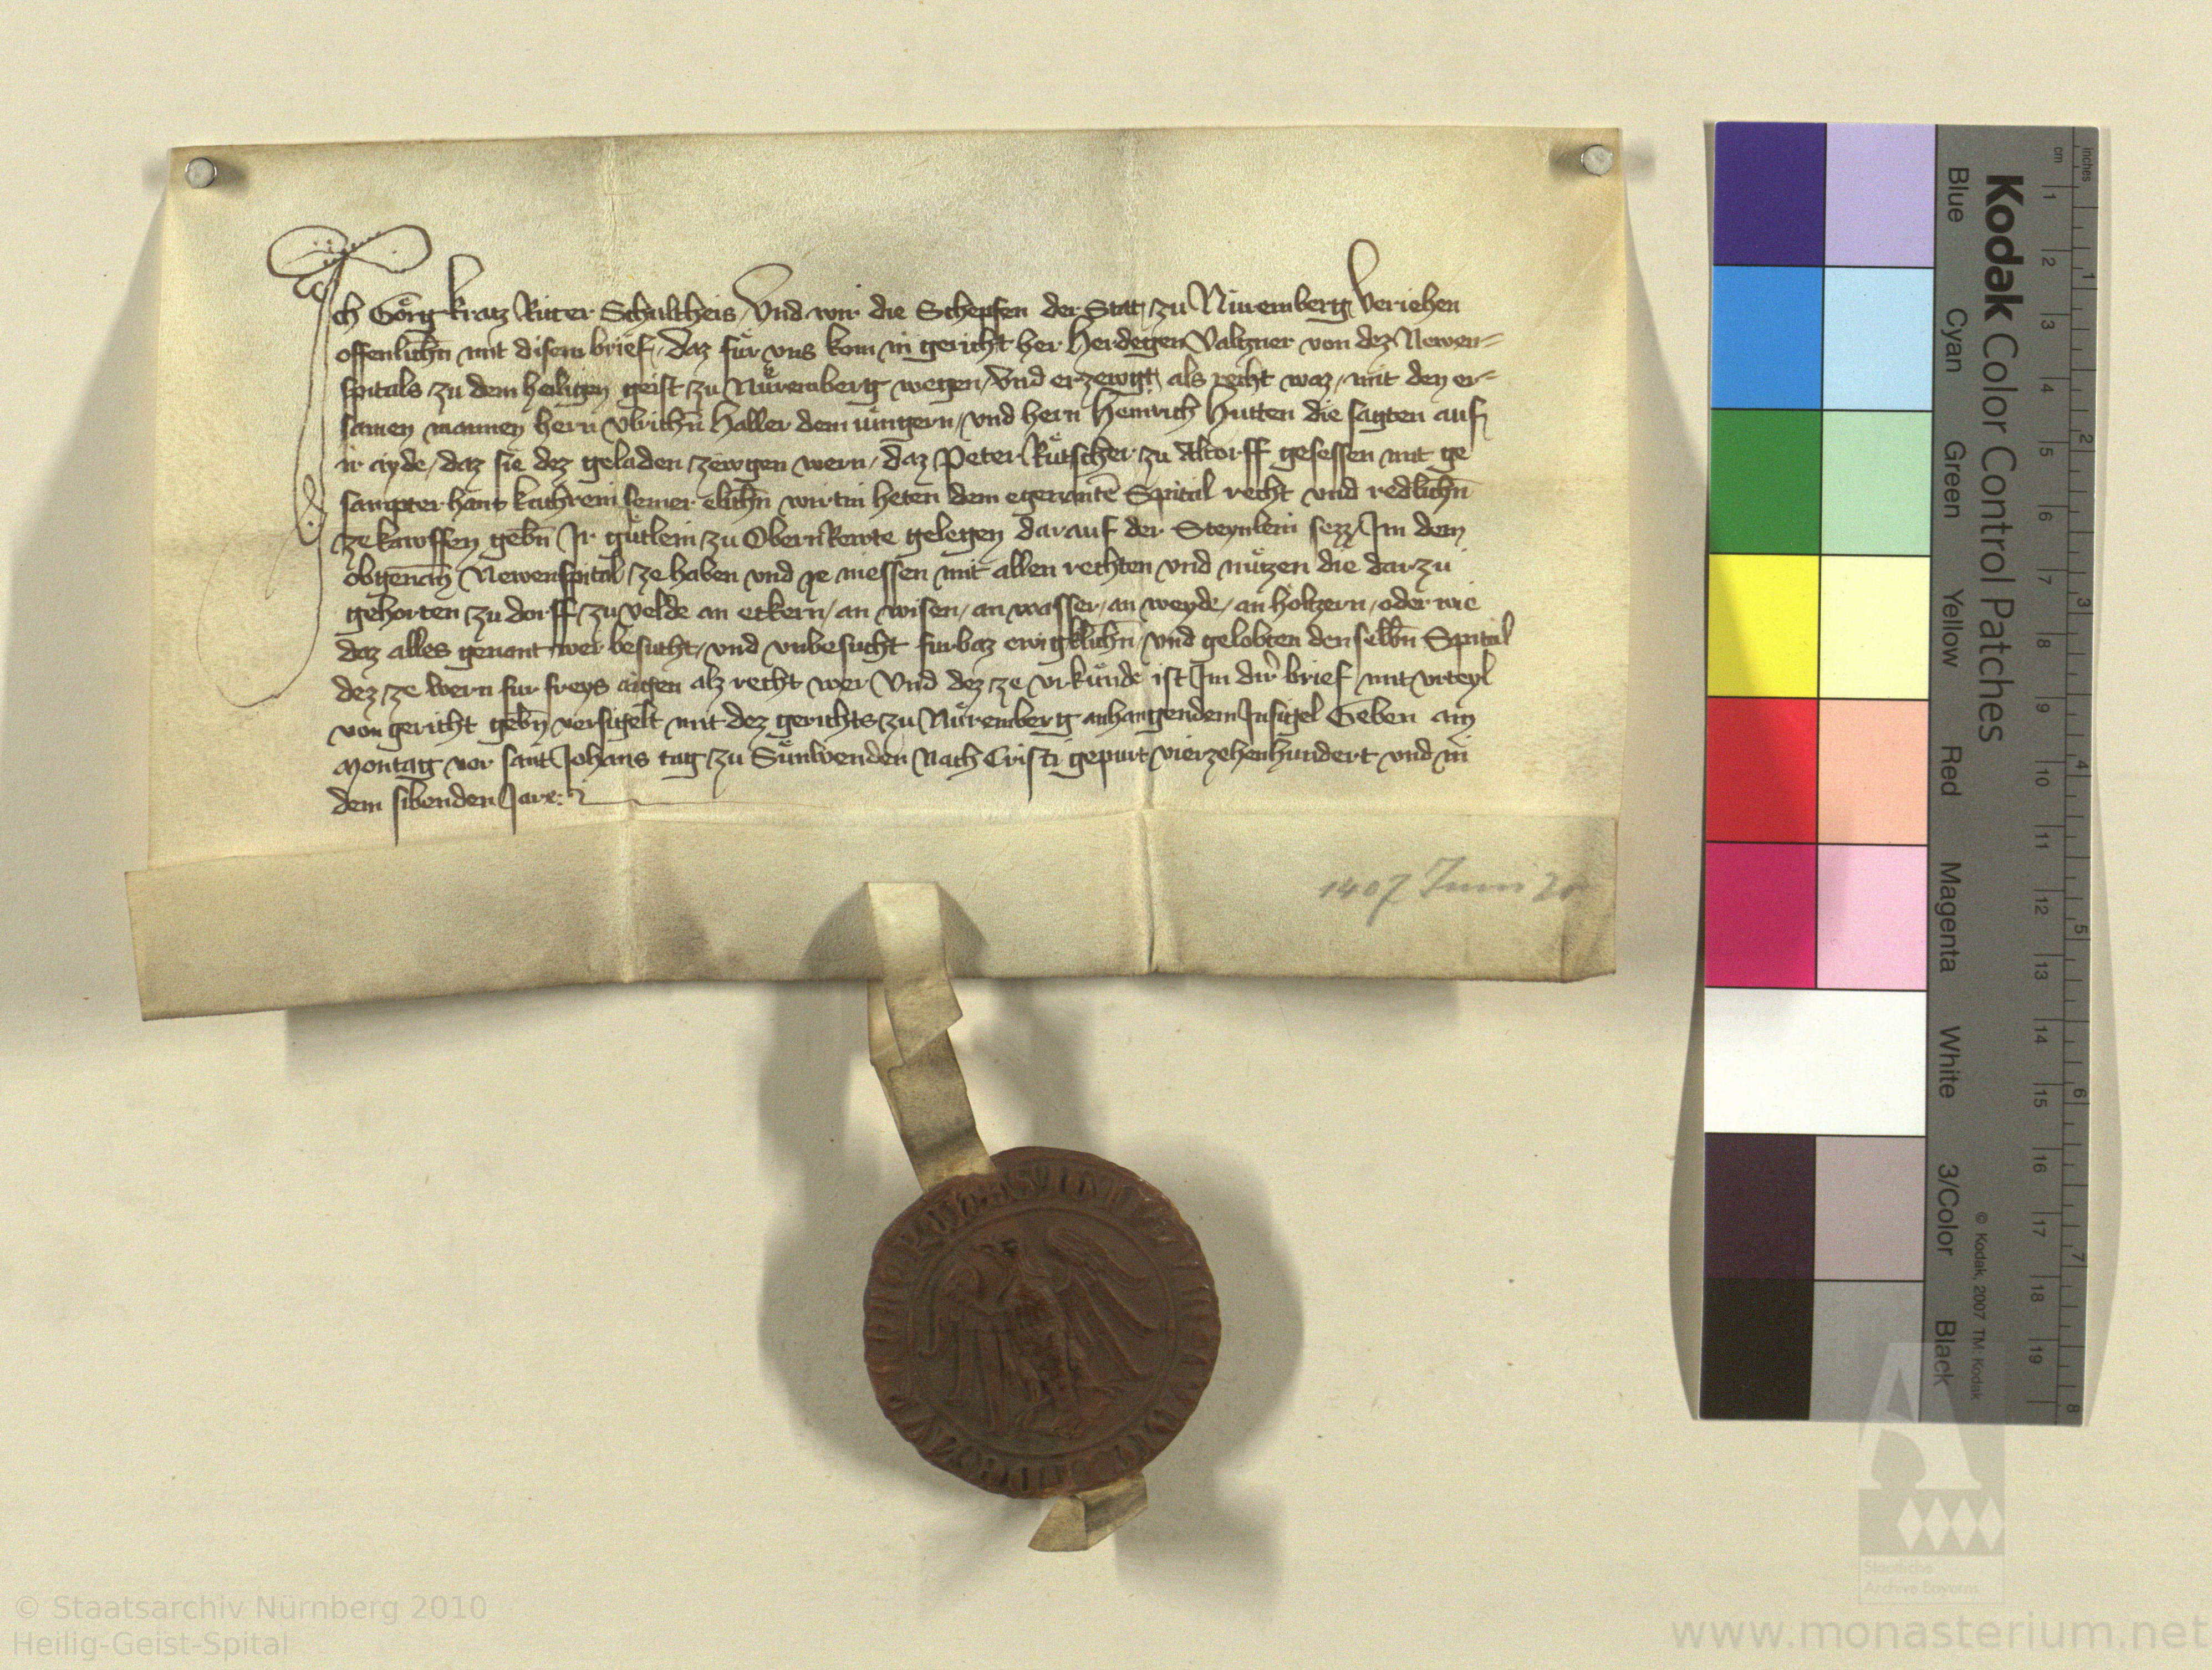 Ich Görg kratz Ritter Schultheis / Vnd wir die Schepfen der Stat / zu Nüremberg Veriehen
offenlichn̄ mit disem brief / daz für vns kom in gericht her Herdegen Valtzner von dez Newen=
spitals zu dem heiligen geist zu Nüremberg wegen / Vnd erzewgt als recht waz / mit den er=
samen mannen hern Vlrichn̄ Haller dem iüngern / vnd hern Heinrich Hutten die sagten auf
ir ayde / daz sie dez geladen zewgen wern / daz Peter Rütscher zu Altorff gesessen mit ge
sampter hant kathrein seiner elichn̄ wirtin heten dem egenantē Spital recht vnd redlichn̄
ze kawffen gebn̄ Ir gütlein zu ObernRewte gelegen darauf der Steynlein sezz / Im dem
obgenan̄ Newenspital / ze haben vnd ze niessen mit allen rechten vnd nützen die darzu
gehorten zu dorff / zu velde an eckern / an wisen / an wasser / an weyde / an höltzern / oder wie
daz alles genant wer besucht / vnd vnbesucht furbaz ewigklichn̄ / vnd gelobten denselbn̄ Spital
dez / ze wern fur freys aigen alz recht wer Vnd dez ze vrkünde ist Im dir̄ brief mit vrteyl
von gericht gebn̄ versigelt mit dez gerichts zu Nüremberg anhangendem Insigel Geben am
Montag vor sant Johans tag zu Sünwenden Nach Cristi gepurt vierzehenhundert vnd in
dem sibenden Jare:
1407 Juni 20
Kodak Color Control Patches
Blue Cyan Green Yellow Red Magenta White 3/Color Black
© Kodak, 2007 TM: Kodak
inches 1 2 3 4 5 6 7 8
cm 1 2 3 4 5 6 7 8 9 10 11 12 13 14 15 16 17 18 19
Staatliche
Archive Bayerns
© Staatsarchiv Nürnberg 2010
Heilig-Geist-Spital
www.monasterium.net